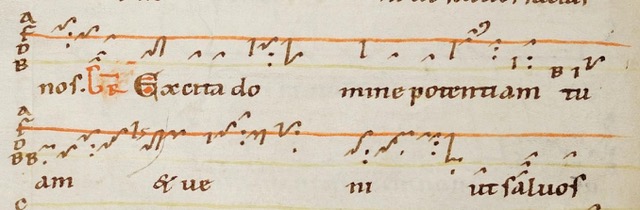 nos. Excita do mine potentiam tu
am & ue ni ut saluos